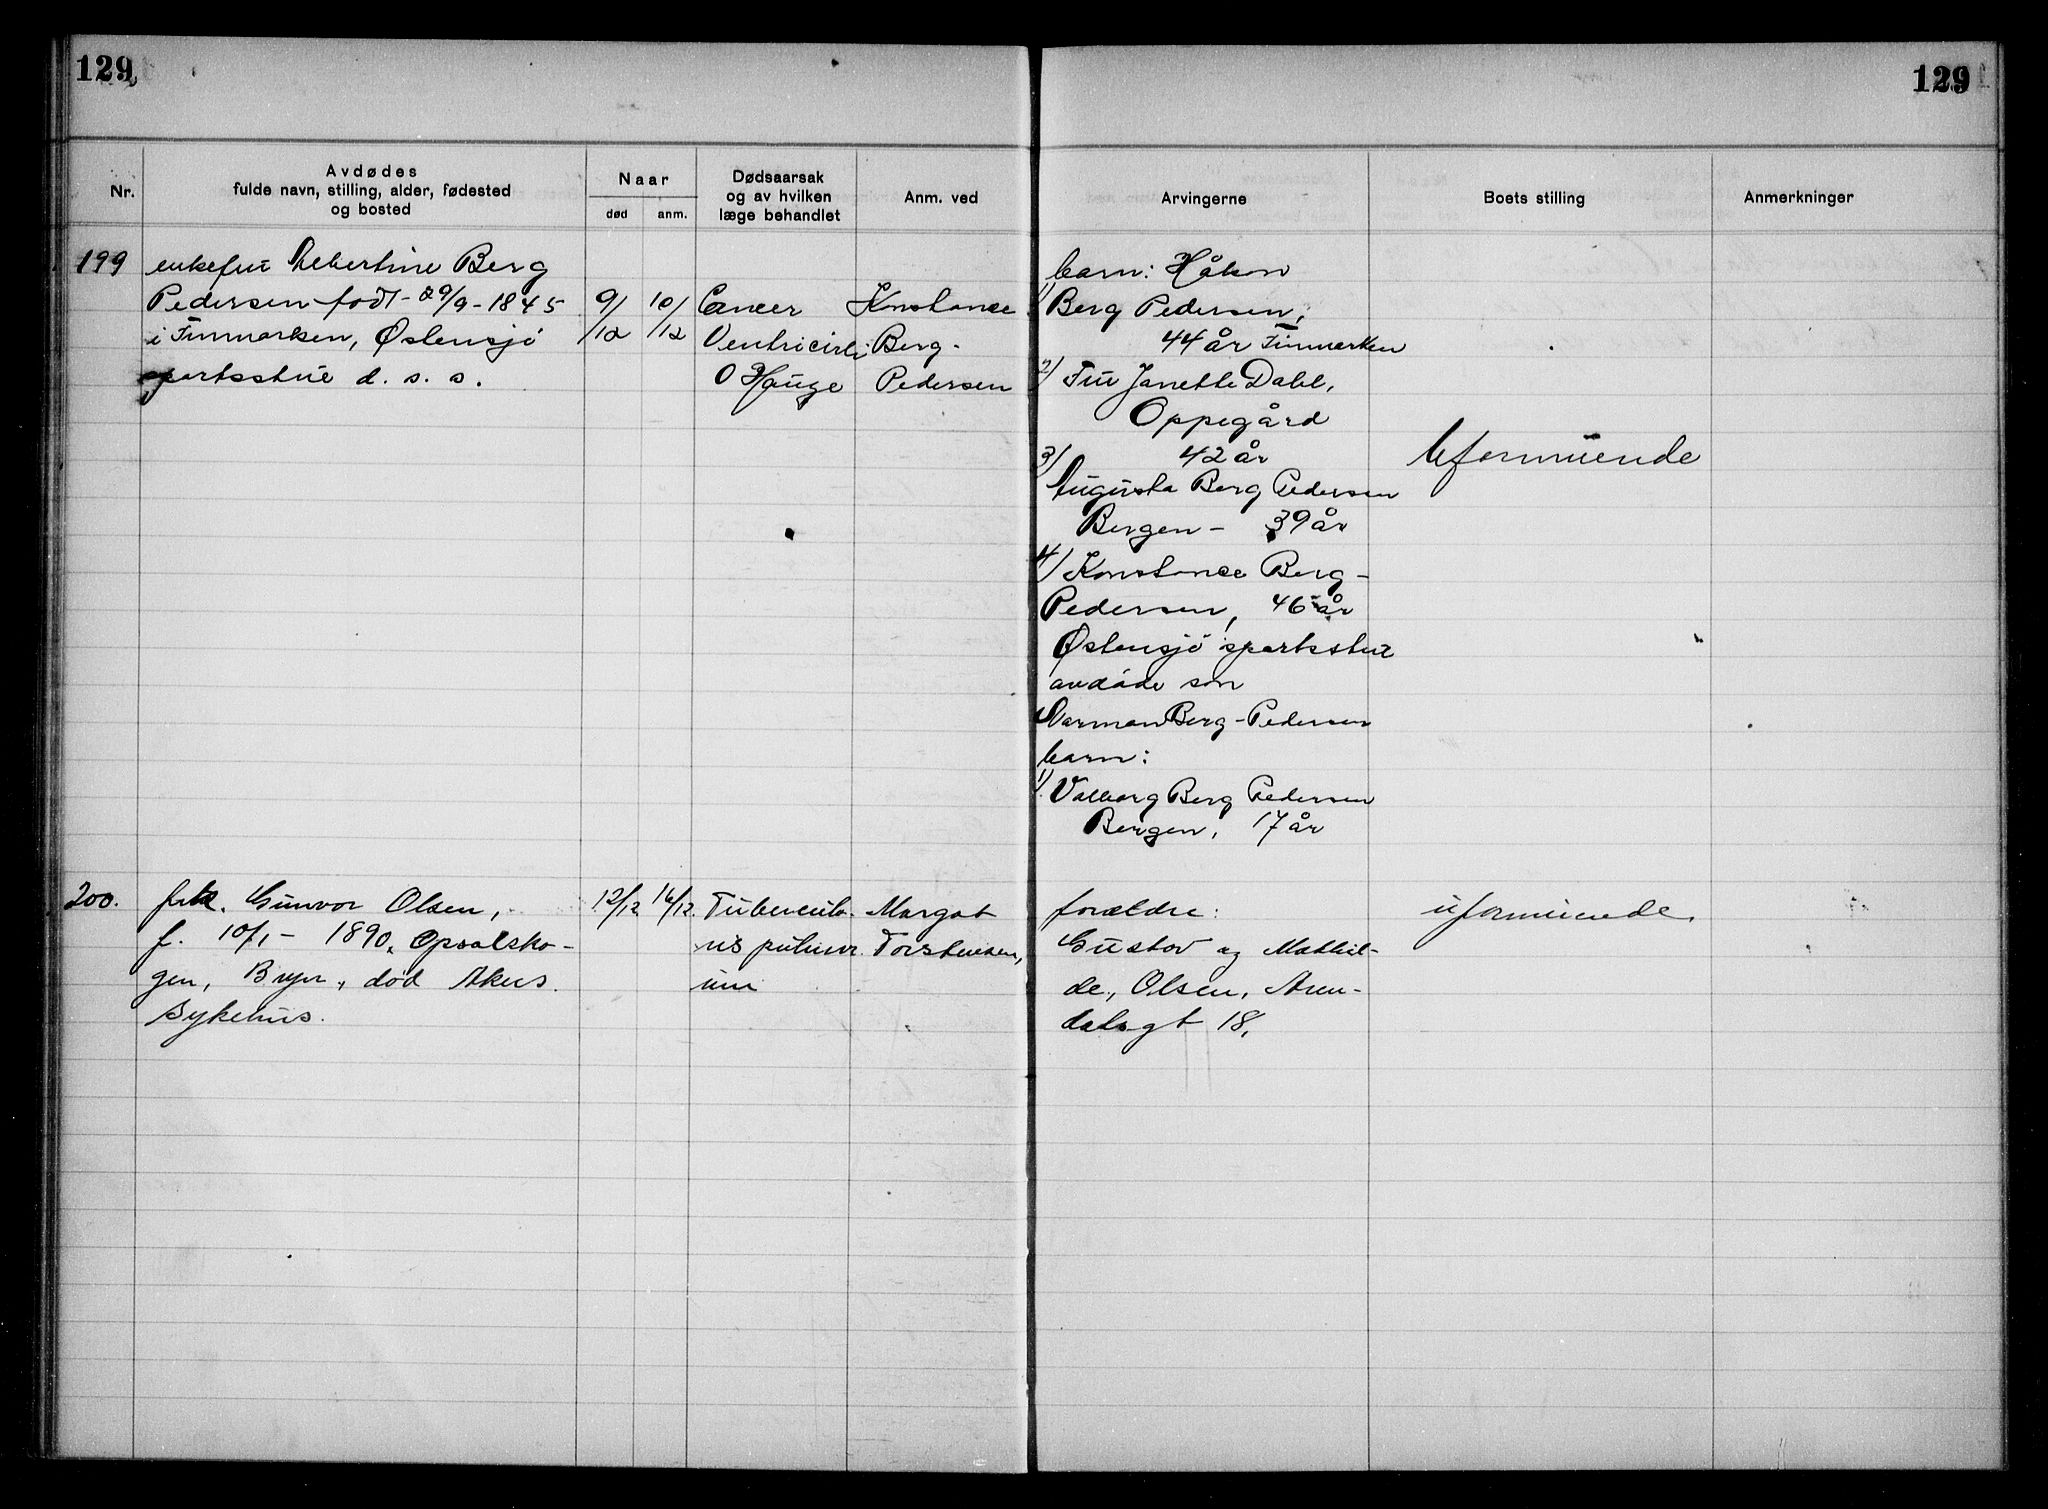 129
129
Nr.
Avdødes
fulde navn, stilling, alder, fødested
og bosted
Naar
død
anm.
Dødsaarsak
og av hvilken
læge behandlet
Anm. ved
Arvingerne
Boets stilling
Anmerkninger
199
enkefru Berg
Pedersen født - 29/9 - 1845
i Finmarken, Østensjø
sportsstue d. s. s.
9/12
10/12
Cancer
Ventriculi
O Hauge
Konstance
Berg-
Pedersen
barn: Håkon
1) Berg Pedersen,
44 år Finmarken
2) Fru Janette Dahl,
Oppegård
42 år
3) Augusta Berg Pedersen
Bergen - 39 år
4) Konstance Berg-
Pedersen, 46 år
Østensjø sportsstue
avdøde søn
Berg-Pedersen
barn:
1) Valborg Berg Pedersen
Bergen, 17 år
Uformuende
200.
frk. Gunvor Olsen,
f. 10/1 - 1890, Opsalsko-
gen, Bryn, død Akers
Sykehus.
12/12
16/12.
Tuberculo-
sis pulmon-
um
Margot
Torstensen,
forældre:
Gustav og Mathil-
de, Olsen, Aren-
dalsgt 18,
uformuende.